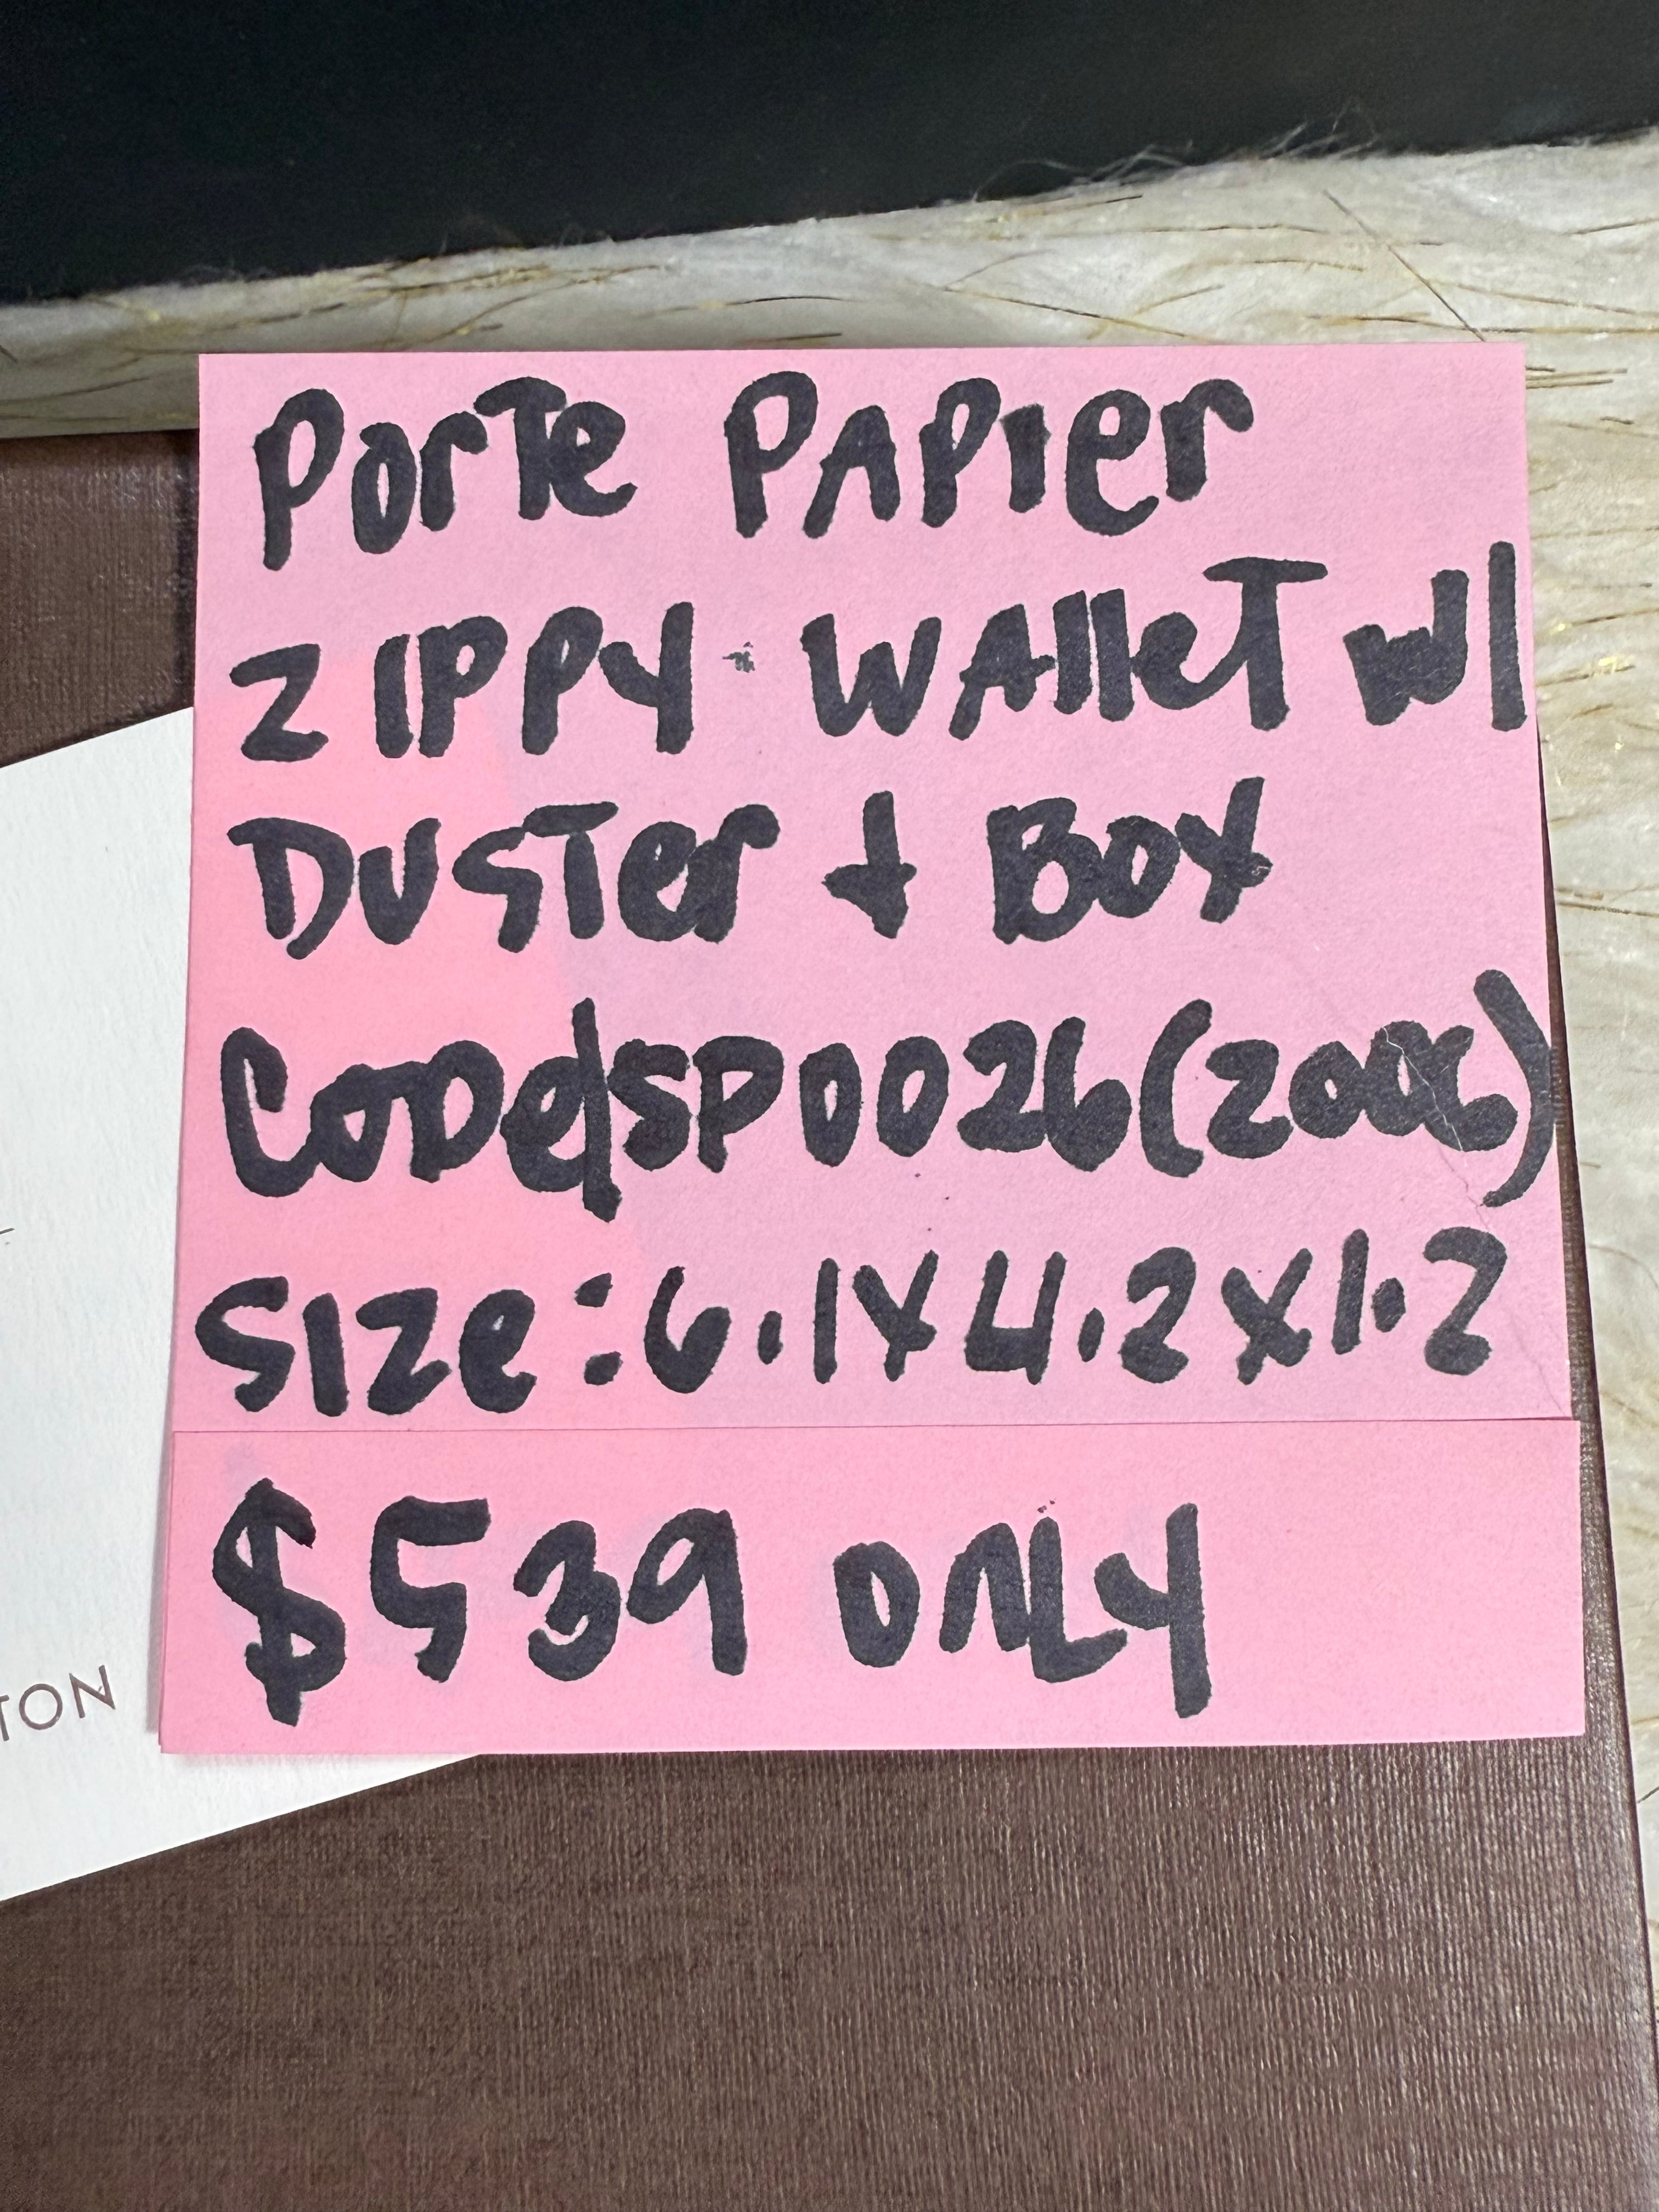 Porte Papier
Zippy Wallet w/
Duster + Box
Code/SP0026(2006)
Size: 6.1x4.2x1.2
$539 only
TON